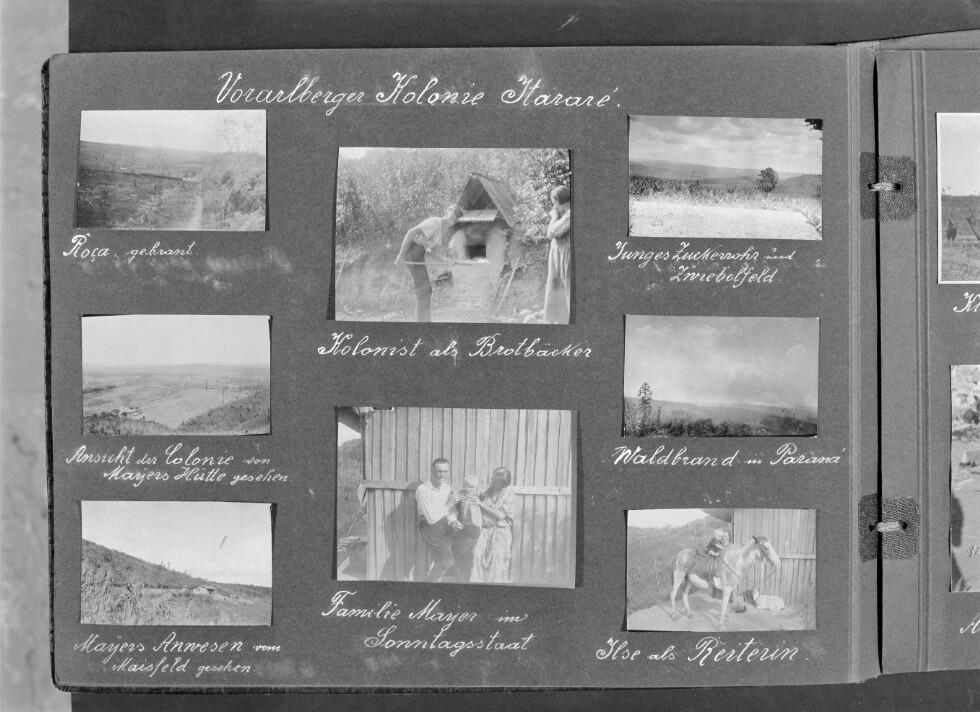 Vorarlberger Kolonie Itararé.
Roça. gebrant
Kolonist als Brotbäcker
Junges Zuckerrohr und
Zwiebelfeld.
Ansicht der Colonie von
Mayers Hütte gesehen
Waldbrand in Paraná
Mayers Anwesen vom
Maisfeld gesehen.
Familie Mayer im
Sonntagsstaat
Ilse als Reiterin.